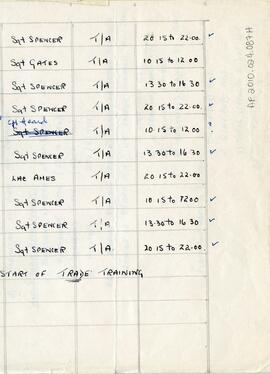 Sgt SPENCER T/A 20 15 to 22.00. ✓
Sgt GATES T/A 10 15 to 12 00
Sgt SPENCER T/A 13 30 to 16 30 ✓
Sgt SPENCER T/A 20 15 to 22.00. ✓
Sgt SPENCER T/A 10 15 to 12 00 ?
Sgt SPENCER T/A 13.30 to 16 30 ✓
LAC AMES T/A 20 15 to 22.00
Sgt SPENCER T/A 10 15 to 1200 ✓
Sgt SPENCER T/A 13-30 to 16 30 ✓
Sgt SPENCER T/A 20 15 to 22.00 ✓
START OF TRADE TRAINING